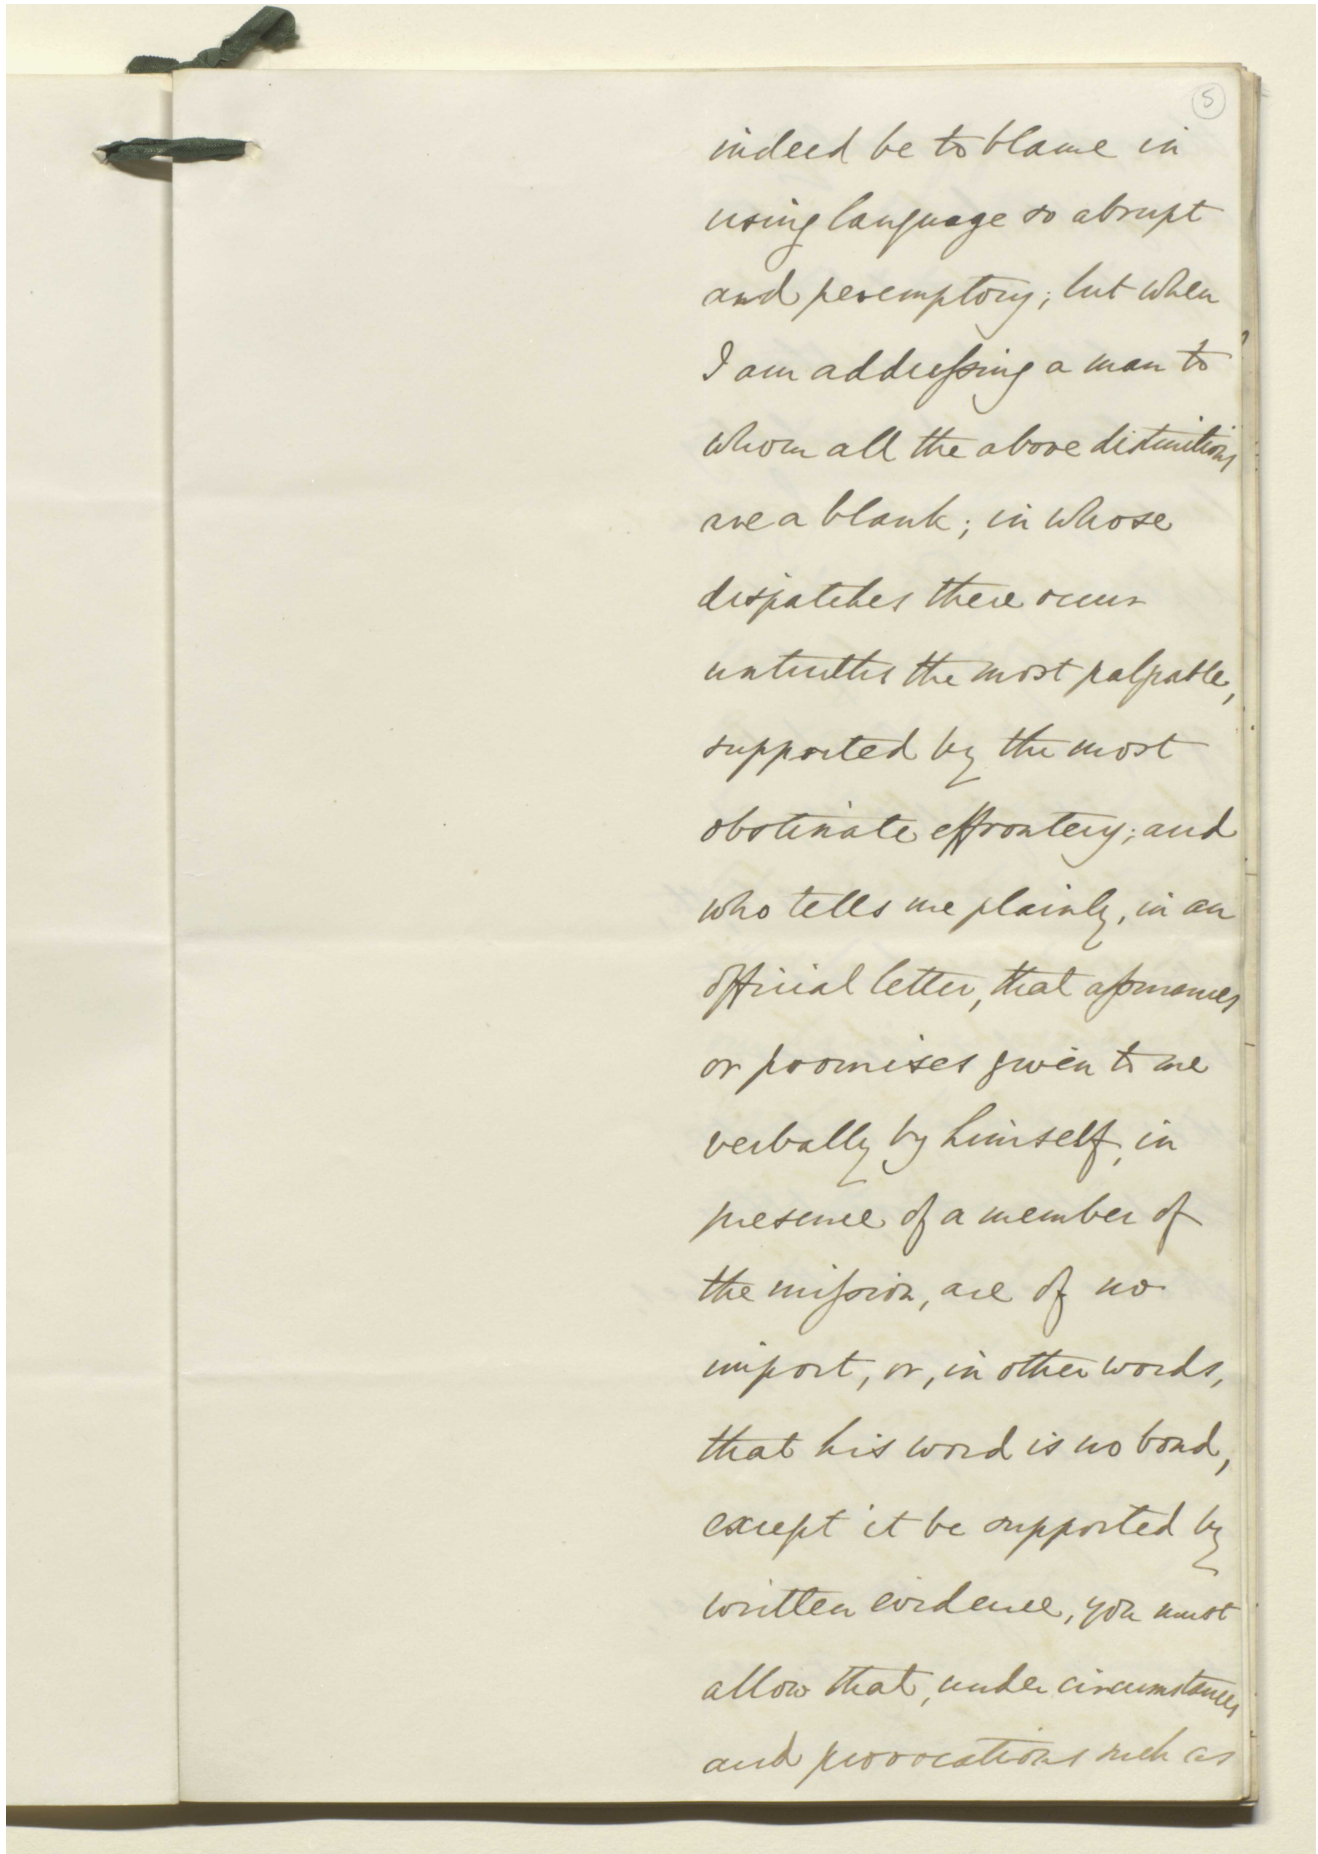 5
indeed be to blame in
using language so abrupt
and peremptory; but when
I am addressing a man to
whom all the above distinctions
are a blank; in whose
dispatches there occur
untruths the most palpable,
supported by the most
obstinate effrontery; and
who tells me plainly, in an
official letter, that assurances
or promises given to me
verbally by himself, in
presence of a member of
the mission, are of no
import, or, in other words,
that his word is no bond,
except it be supported by
written evidence, you must
allow that, under circumstances
and provocations such as